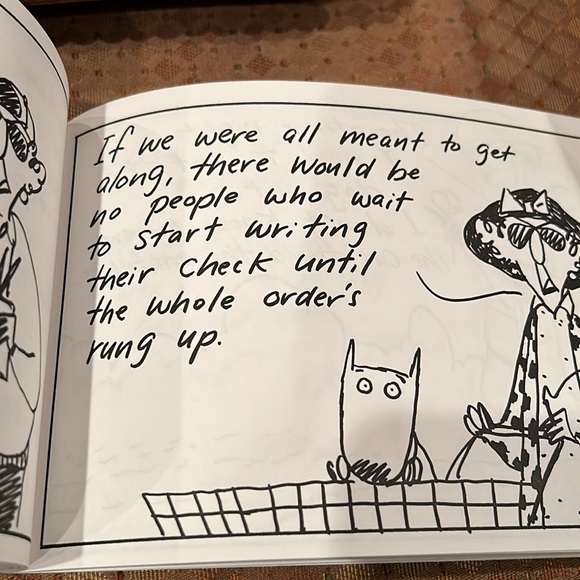 If we were all meant to get
along, there would be
no people who wait
to start writing
their check until
the whole order's
rung up.